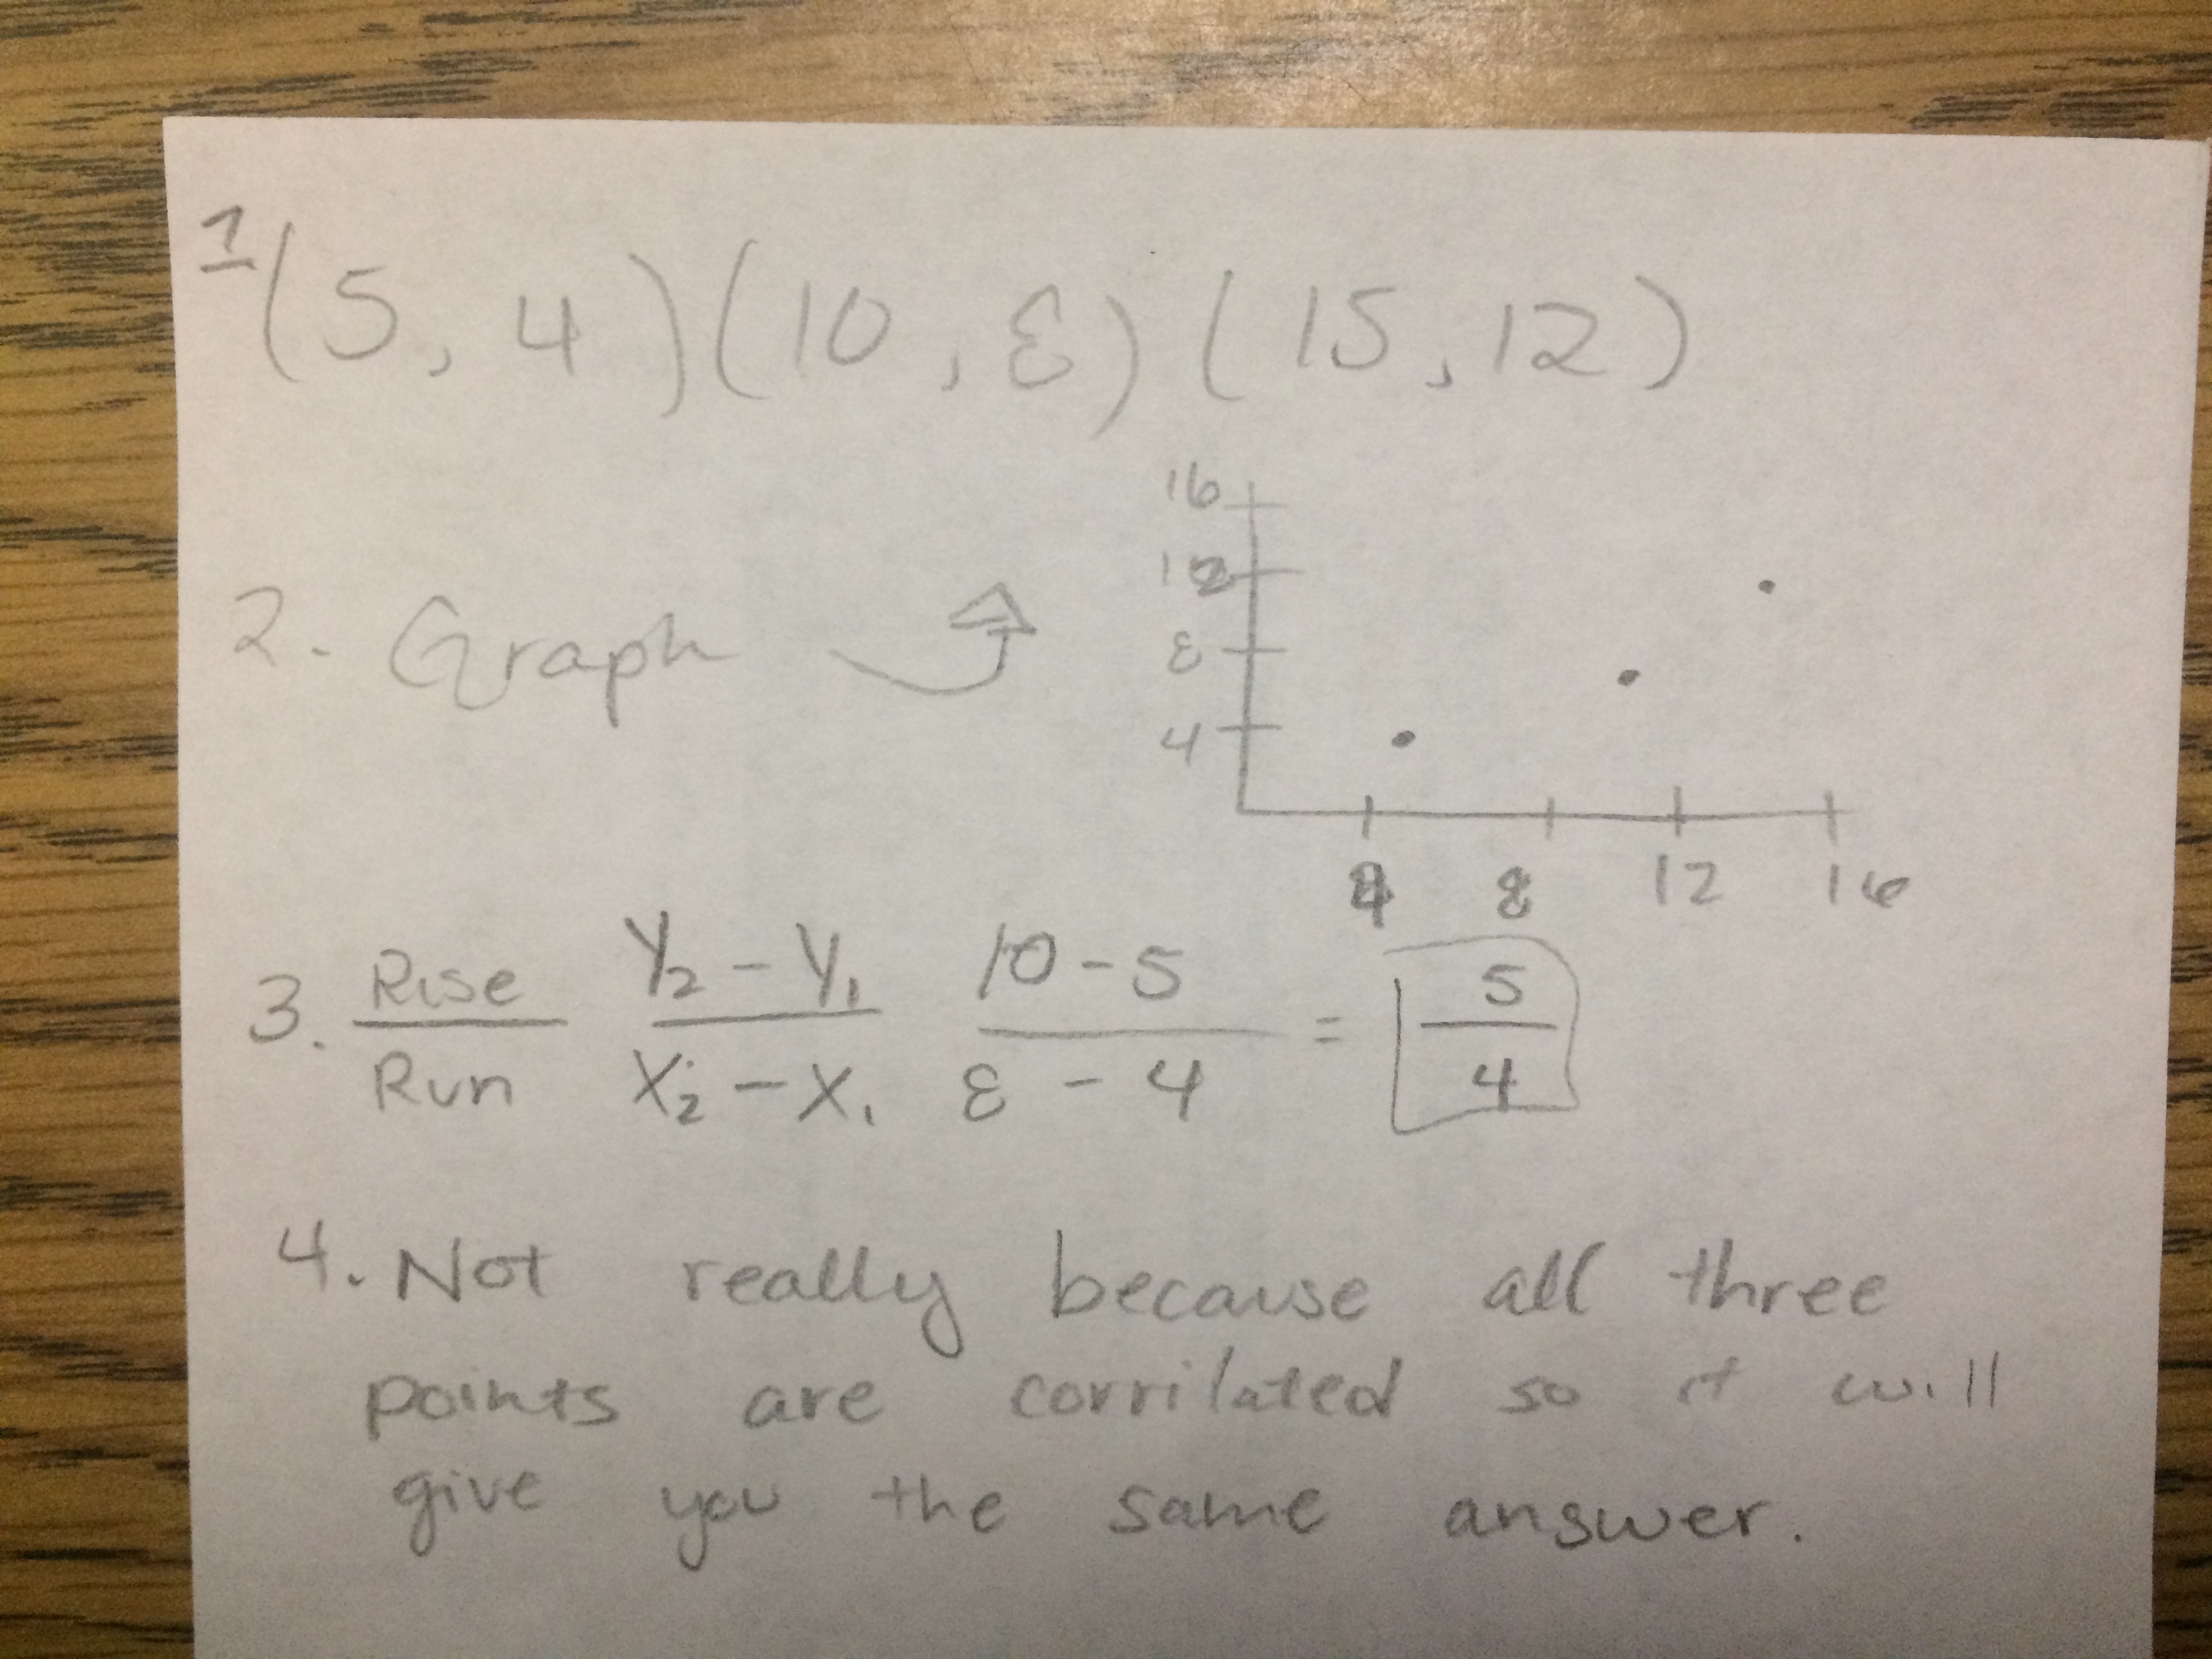 1 (5, 4) (10, 8) (15, 12)
16
12
8
4
2. Graph
4 8 12 16
3. Rise/Run Y₂ - Y₁/X₂ - X₁ 10 - 5/8 - 4 = 5/4
4. Not really because all three
points are corrilated so it will
give you the same answer.